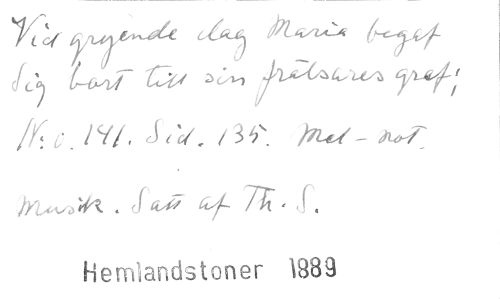 Vid gryende dag Maria begaf
Sig bort till sin frälsares graf;
N:o. 141. Sid. 135. Mel-not.
Musik. Satt af Th. S.
Hemlandstoner 1889